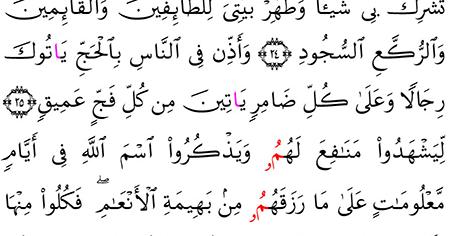 تُشْرِكْ بِى شَيْـًٔا وَطَهِّرْ بَيْتِىَ لِلطَّآئِفِينَ وَالْقَآئِمِينَ
وَالرُّكَّعِ السُّجُودِ ٢٤ وَأَذِّن فِى النَّاسِ بِالْحَجِّ يَاتُوكَ
رِجَالًا وَعَلَىٰ كُلِّ ضَامِرٍ يَاتِينَ مِن كُلِّ فَجٍّ عَمِيقٍ ٢٥
لِّيَشْهَدُوا۟ مَنَـٰفِعَ لَهُمُۥ وَيَذْكُرُوا۟ اسْمَ اللَّهِ فِى أَيَّامٍ
مَّعْلُومَـٰتٍ عَلَىٰ مَا رَزَقَهُمُۥ مِنۢ بَهِيمَةِ الْأَنْعَـٰمِ ۖ فَكُلُوا۟ مِنْهَا